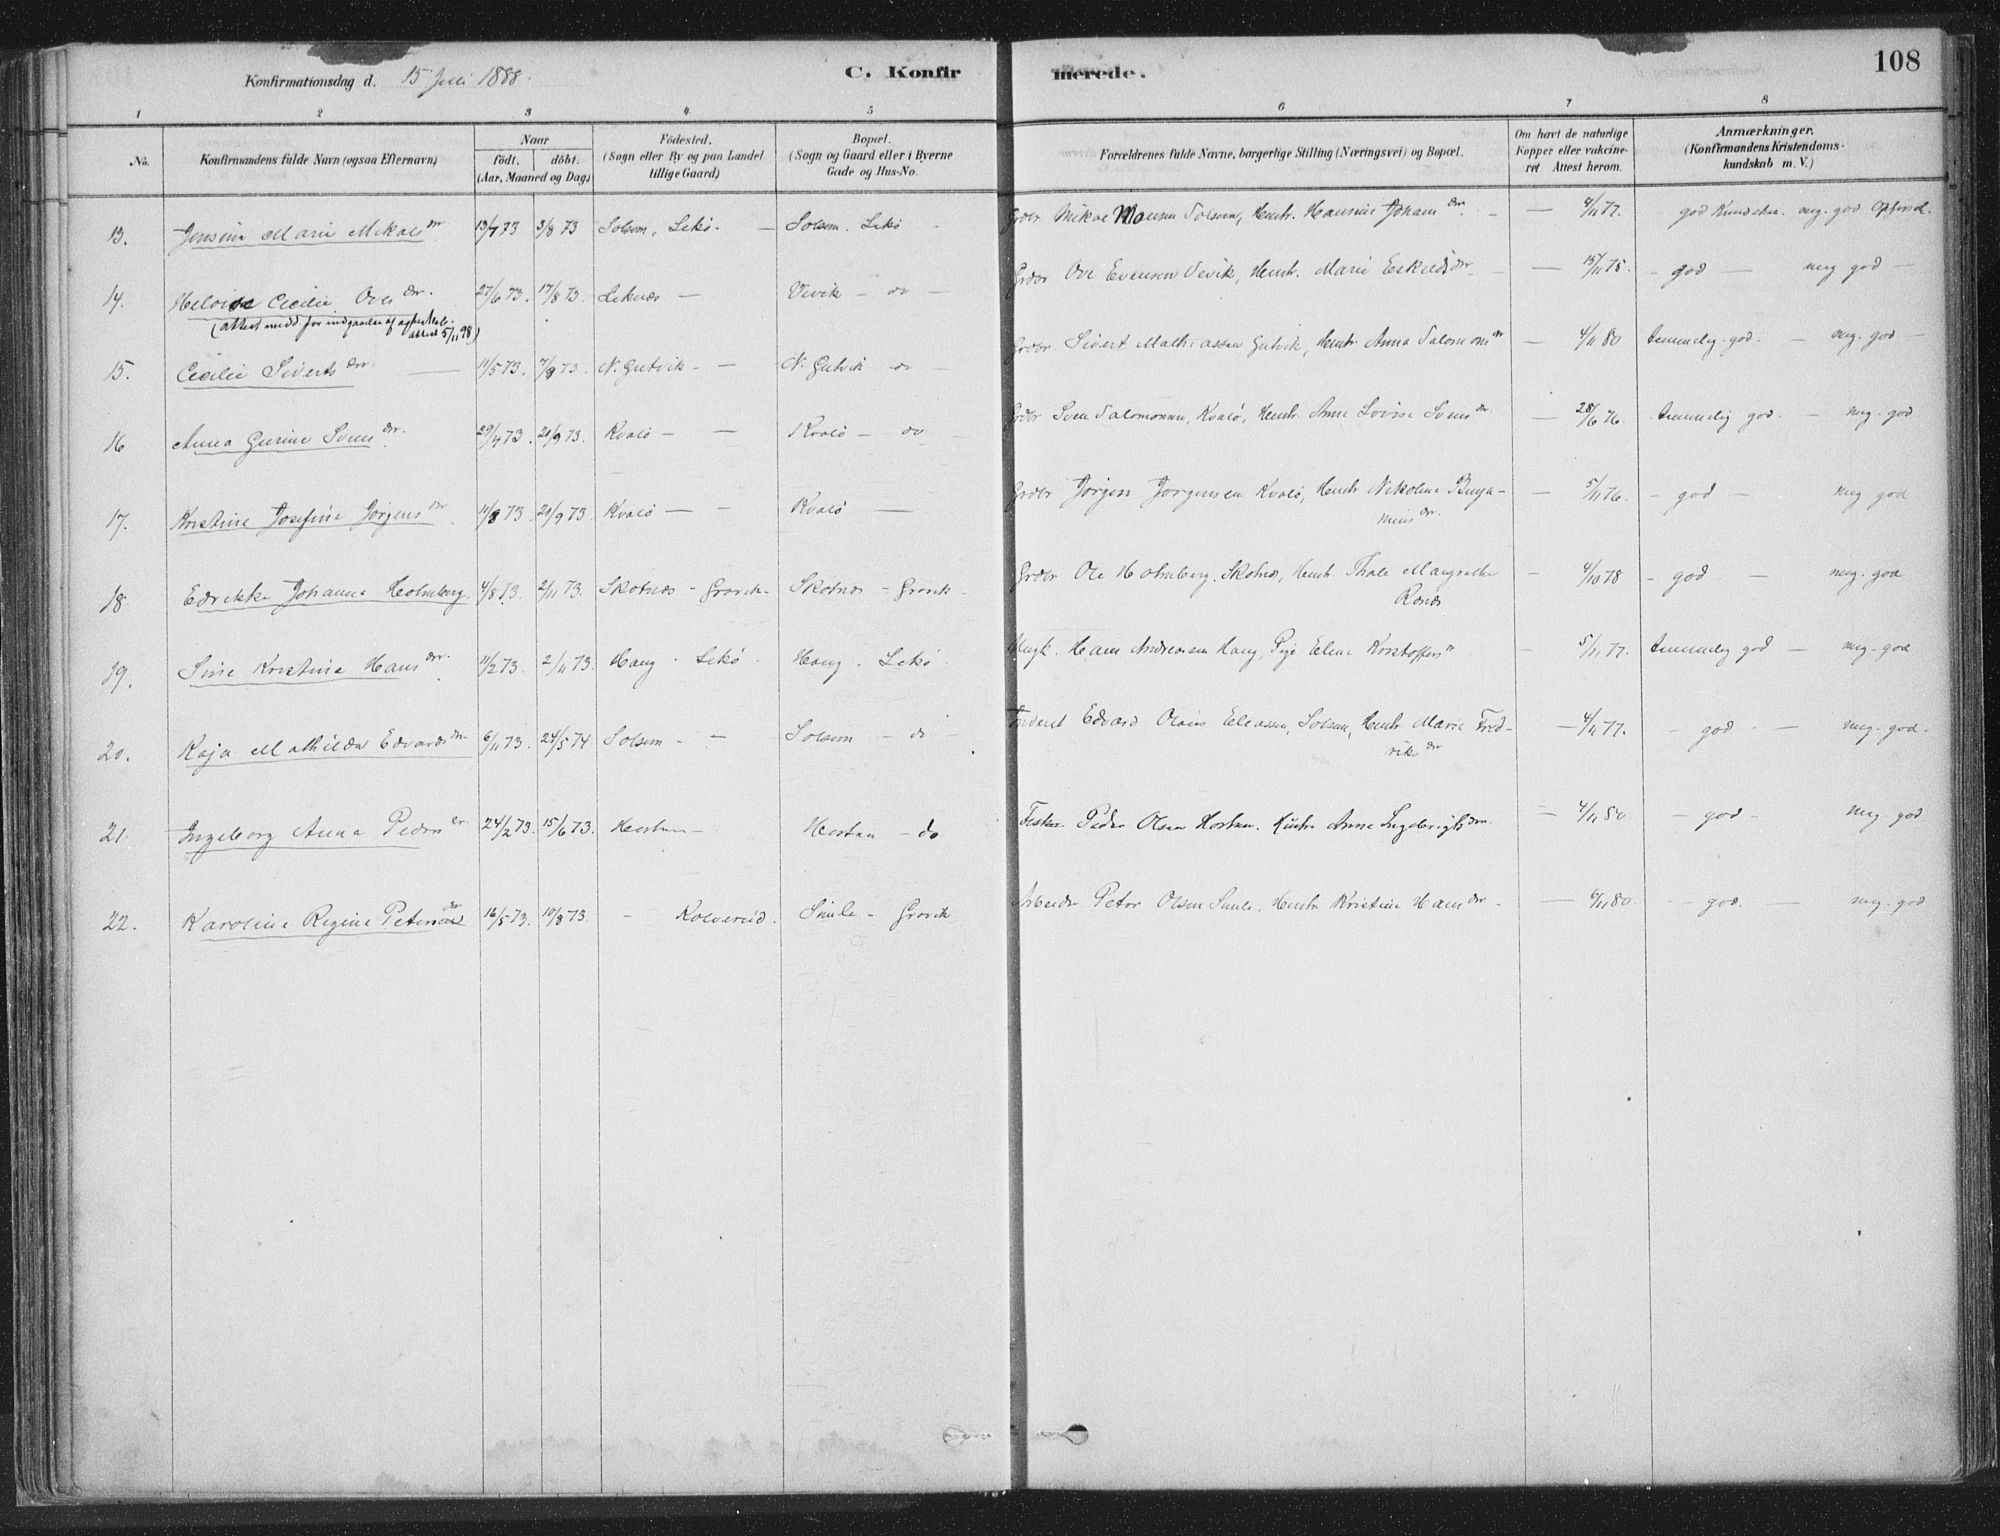 108
Konfirmationsdag d. 15 Juli 1888. C. Konfirmerede.
1 2 3 4 5 6 7 8
No. Konfirmandens fulde Navn (ogsaa Efternavn) Naar Födt. döbt. (Aar, Maaned og Dag) Födested. (Sogn eller By og paa Landet tillige Gaard) Bopæl. (Sogn og Gaard eller i Byerne Gade og Hus-No. Forældrenes fulde Navne, borgerlige Stilling (Næringsvei) og Bopæl. Om havt de naturlige Kopper eller vakcineret Attest herom. Anmærkninger. (Konfirmandens Kristendomskundskab m. V.)
13. Jensine Marie Mikals dr. 13/7 73 3/8 73 Solsem, Lekö - Solsem. Lekö Grdbr Mikal Solsem, Hustr. Johans dr. - 4/11 77. god Kundskab. meg. god Opförsel.
14. Heloise Cecilie Oves dr. 27/6 73. 17/8 73. Leknes - Vevik - do - Grdbr Ove Evensen Vevik, Hustr. Marie Eskilds dr. - 15/11 75. - god - meg god -
(attest medd for indgaaelse af 5/11 98)
15. Cecilie Siverts dr. 11/5 73. 7/9 73. N. Gutvik - - N. Gutvik do - Grdbr Sivert Mathiassen Gutvik, Hustr Anna Salomons dr - 4/11 80 temmelig god. - meg. god -
16 Anna Gurine Svens dr. 29/4 73. 21/9 73. Kvalö - - Kvalö - do - Grdbr Sven Salomonsen, Kvalö, Hustr. Anne Lovise Svens dr. - 28/6 76. temmelig god. - meg. god
17. Kristine Josefine Jörgens dr. 11/8 73. 21/9 73. Kvalö - - Kvalö - Grdbr Jörgen Jörgensen Kvalö, Hustr Nikoline Benja-
mins dr. - 5/11 76. - god - meg god
18. Edrikke Johanna Holmberg. 4/8 73. 2/11 73. Skotnes - Gravik - Skotnes - Gravik - Grdbr Ole Holmberg. Skotnes, Hustr. Thale Margrethe
- 4/10 78 - god - meg. god
19. Sine Kristine Hans dr. 11/2 73. 2/11 73. Haug. Lekö. Haug. Lekö. Ungk. Hans Andreassen Haug, Pige Eline Kristoffers dr - 5/11 77. temmelig god - meg. god
20. Kaja Mathilda Edvards dr. 6/11 73. 24/5 74 Solsem - - Solsem - do - Edvard Olaus Eliassen, Solsem, Hustr Marie Fred-
riks dr - 4/11 77. - god - meg. god -
21. Ingeborg Anna Peders dr. 24/2 73. 15/6 73. Horten - Horten - do Fisker Peder Olsen Horten. Hustr Anne Ingebrigts dr. - 4/11 80 - god - meg. god
22. Karoline Regine Peters dr 16/5 73. 10/8 73. - Kolvereid. Smile - Gravik Arbeider Peter Olsen Smile, Hustr Kristine Hans dr. - 6/11 80. - god. - meg. god